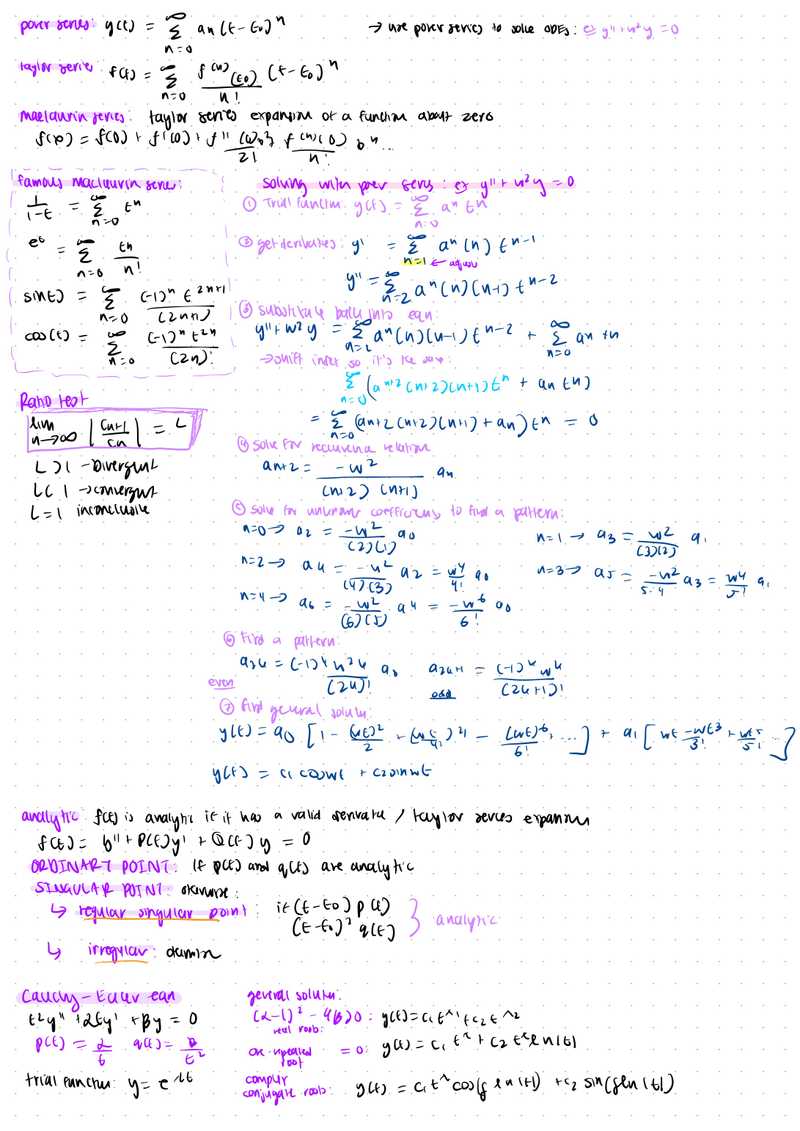 power series: y(t) = ∞Σn=0 an(t-t0)^n → use power series to solve ODEs: ex y''+w²y = 0
taylor series f(t) = ∞Σn=0 f^(n)(t0)/n! (t-t0)^n
maclaurin series: taylor series expansion of a function about zero
f(0) + f'(0) + f''(0) /2! f^(n)(0)/n! ...
famous maclaurin series:
1/(1-t) = ∞Σn=0 t^n
e^t = ∞Σn=0 t^n/n!
sin(t) = ∞Σn=0 (-1)^n t^(2n+1)/(2n+1)
cos(t) = ∞Σn=0 (-1)^n t^(2n)/(2n)!
Ratio test
lim n→∞ |cn+1/cn| = L
L > 1 - divergent
L < 1 → convergent
L = 1 inconclusive
solving with power series: ex y'' + w²y = 0
① Trial function: y(t) = ∞Σn=0 a^n t^n
② get derivatives: y' = ∞Σn=1 a^n(n) t^(n-1)
← adjust
y'' = ∞Σn=2 a^n(n)(n-1) t^(n-2)
③ substitute back into eqn:
y''+w²y = ∞Σn=2 a^n(n)(n-1) t^(n-2) + ∞Σn=0 an tn
→ shift index so it's the same:
∞Σn=0 (a^(n+2)(n+2)(n+1)t^n + an tn)
= ∞Σn=0 (an+2(n+2)(n+1) + an) t^n = 0
④ solve for recurrence relation
an+2 = -w²/((n+2)(n+1)) an
⑤ solve for unknown coefficients to find a pattern:
n=0 → a2 = -w²/((2)(1)) a0 n=1 → a3 = w²/((3)(2)) a1
n=2 → a4 = -w²/((4)(3)) a2 = w⁴/4! a0 n=3 → a5 = -w²/(5·4) a3 = w⁴/5! a1
n=4 → a6 = -w²/((6)(5)) a4 = -w⁶/6! a0
⑥ Find a pattern:
a2k = (-1)^k w^2k/(2k)! a0 a2k+1 = (-1)^k w^k/(2k+1)!
even odd
⑦ Find general solution:
y(t) = a0 [1 - (wt)²/2 + (wt)⁴/4! - (wt)⁶/6! ...] + a1 [wt - wt³/3! + wt⁵/5! ...]
y(t) = c1 coswt + c2 sinwt
analytic: f(t) is analytic if it has a valid derivative / taylor series expansion
f(t) = y'' + P(t)y' + Q(t)y = 0
ORDINARY POINT: if p(t) and q(t) are analytic
SINGULAR POINT: otherwise:
↳ regular singular point: if (t-t0) p(t)
(t-t0)² q(t) } analytic
↳ irregular: otherwise
Cauchy-Euler eqn
t²y'' + αty' + βy = 0
p(t) = α/t q(t) = β/t²
trial function: y =
general solution:
(α-1)² - 4β > 0: y(t) = c1 t^λ1 + c2 t^λ2
real roots:
one repeated root = 0: y(t) = c1 t^λ + c2 t^λ ln|t|
complex
conjugate roots: y(t) = c1 t^λ cos( ln|t|) + c2 sin( ln|t|)